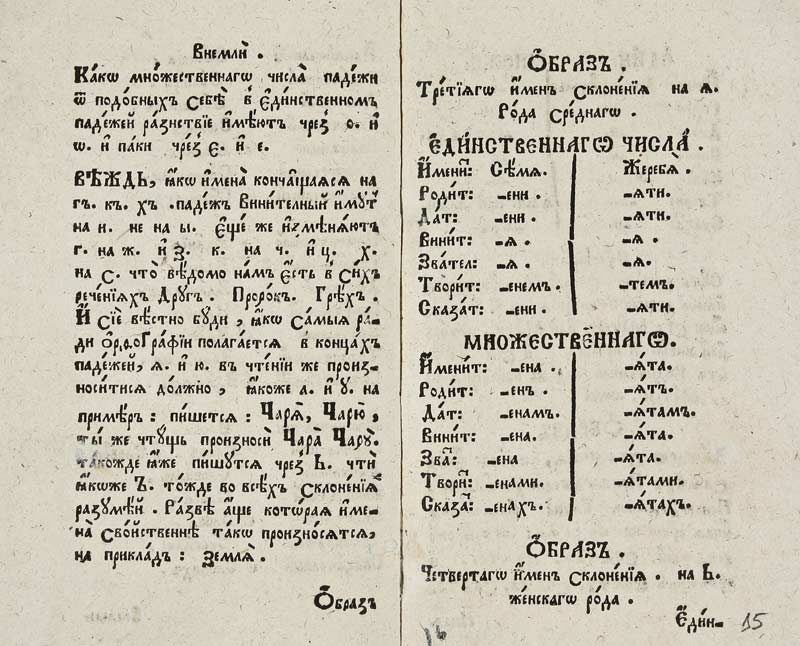 Внемлѝ .
Ка́кѡ мно́жественнагѡ числа̀ паде́жи
ѿ подо́бныхъ Себѣ̀ в̾ є҆ди́нственномъ
паде́жей ра́знствїе и҆мѣ́ютъ чрез̾ ѻ. и҆
ѡ. и҆ па́ки чре́з̾ є. и҆ е.
ВѢ́ЖДЬ, ꙗ҆́кѡ и҆мена̀ кончащїѧсѧ на
гъ. къ. хъ .паде́жъ Вини́телный и҆́мꙋтъ
на и. не на ы. Є҆ще́ же и҆змѣнѧ́ютъ
г. на ж. и҆ з. к. на ч. и҆ ц. х.
на с. что̀ вѣ́домо на́мъ є҆́сть в̾ Си́хъ
рече́нїѧхъ Дрꙋ́гъ. Проро́къ. Грѣ́хъ.
И҆ Сїѐ вѣ́стно бꙋ́ди, ꙗ҆́кѡ Самыѧ ра́-
ди Ѻ҆рѳоГра́фїи полага́етсѧ в̾ конца́хъ
паде́жей, ѧ. и҆ ю. въ чте́нїи же произ-
носи́тисѧ до́лжно, ꙗ҆́коже а. и҆ ꙋ. на
примѣ́ръ: пи́шетсѧ: Чарѧ̀, Чарю̀,
ты́ же чтꙋ́щь произносѝ Чара̀ Чарꙋ̀.
та́кожде ꙗ҆́же пи́шꙋтсѧ чрез̾ Ь. чтѝ
ꙗ҆́кѡже Ъ. то́жде во всѣ́хъ Склоне́нїѧ
разꙋмѣ́й. Ра́звѣ а҆́ще кото́раѧ и҆ме-
на̀ Сво́йственнѣ та́кѡ произно́сѧтсѧ,
на прикла́дъ: Землѧ̀.
Ѻ҆́бразъ
Ѻ҆́БРАЗЪ.
Тре́тїѧгѡ и҆ме́нъ Склоне́нїѧ на ѧ.
Ро́да Сре́днагѡ.
Є҆ДИ́НСТВЕННАГѠ ЧИСЛА̀.
И҆мени: Сѣ́мѧ. Жеребѧ̀.
Роди́т: -ени. -ѧ́ти.
Да́т: -ени. -ѧ́ти.
Вини́т: -ѧ. -ѧ̀.
Зва́тел: -ѧ. -ѧ̀.
Твори́т: -енемъ. -темъ.
Сказа́т: -ени. -ѧ́ти.
МНО́ЖЕСТВЕННАГѠ.
И҆мени́т: -ена. -ѧ́та.
Роди́т: -енъ. -ѧ́тъ.
Да́т: -енамъ. -ѧ́тамъ.
Вини́т: -ена. -ѧ́та.
Зва: -ена -ѧ́та.
Твори: -енами. -ѧ́тами.
Сказа: -енахъ. -ѧ́тахъ.
Ѻ҆́БРАЗЪ.
Четве́ртагѡ и҆ме́нъ Склоне́нїѧ. на Ь.
же́нскагѡ ро́да.
Є҆ди́н- 15